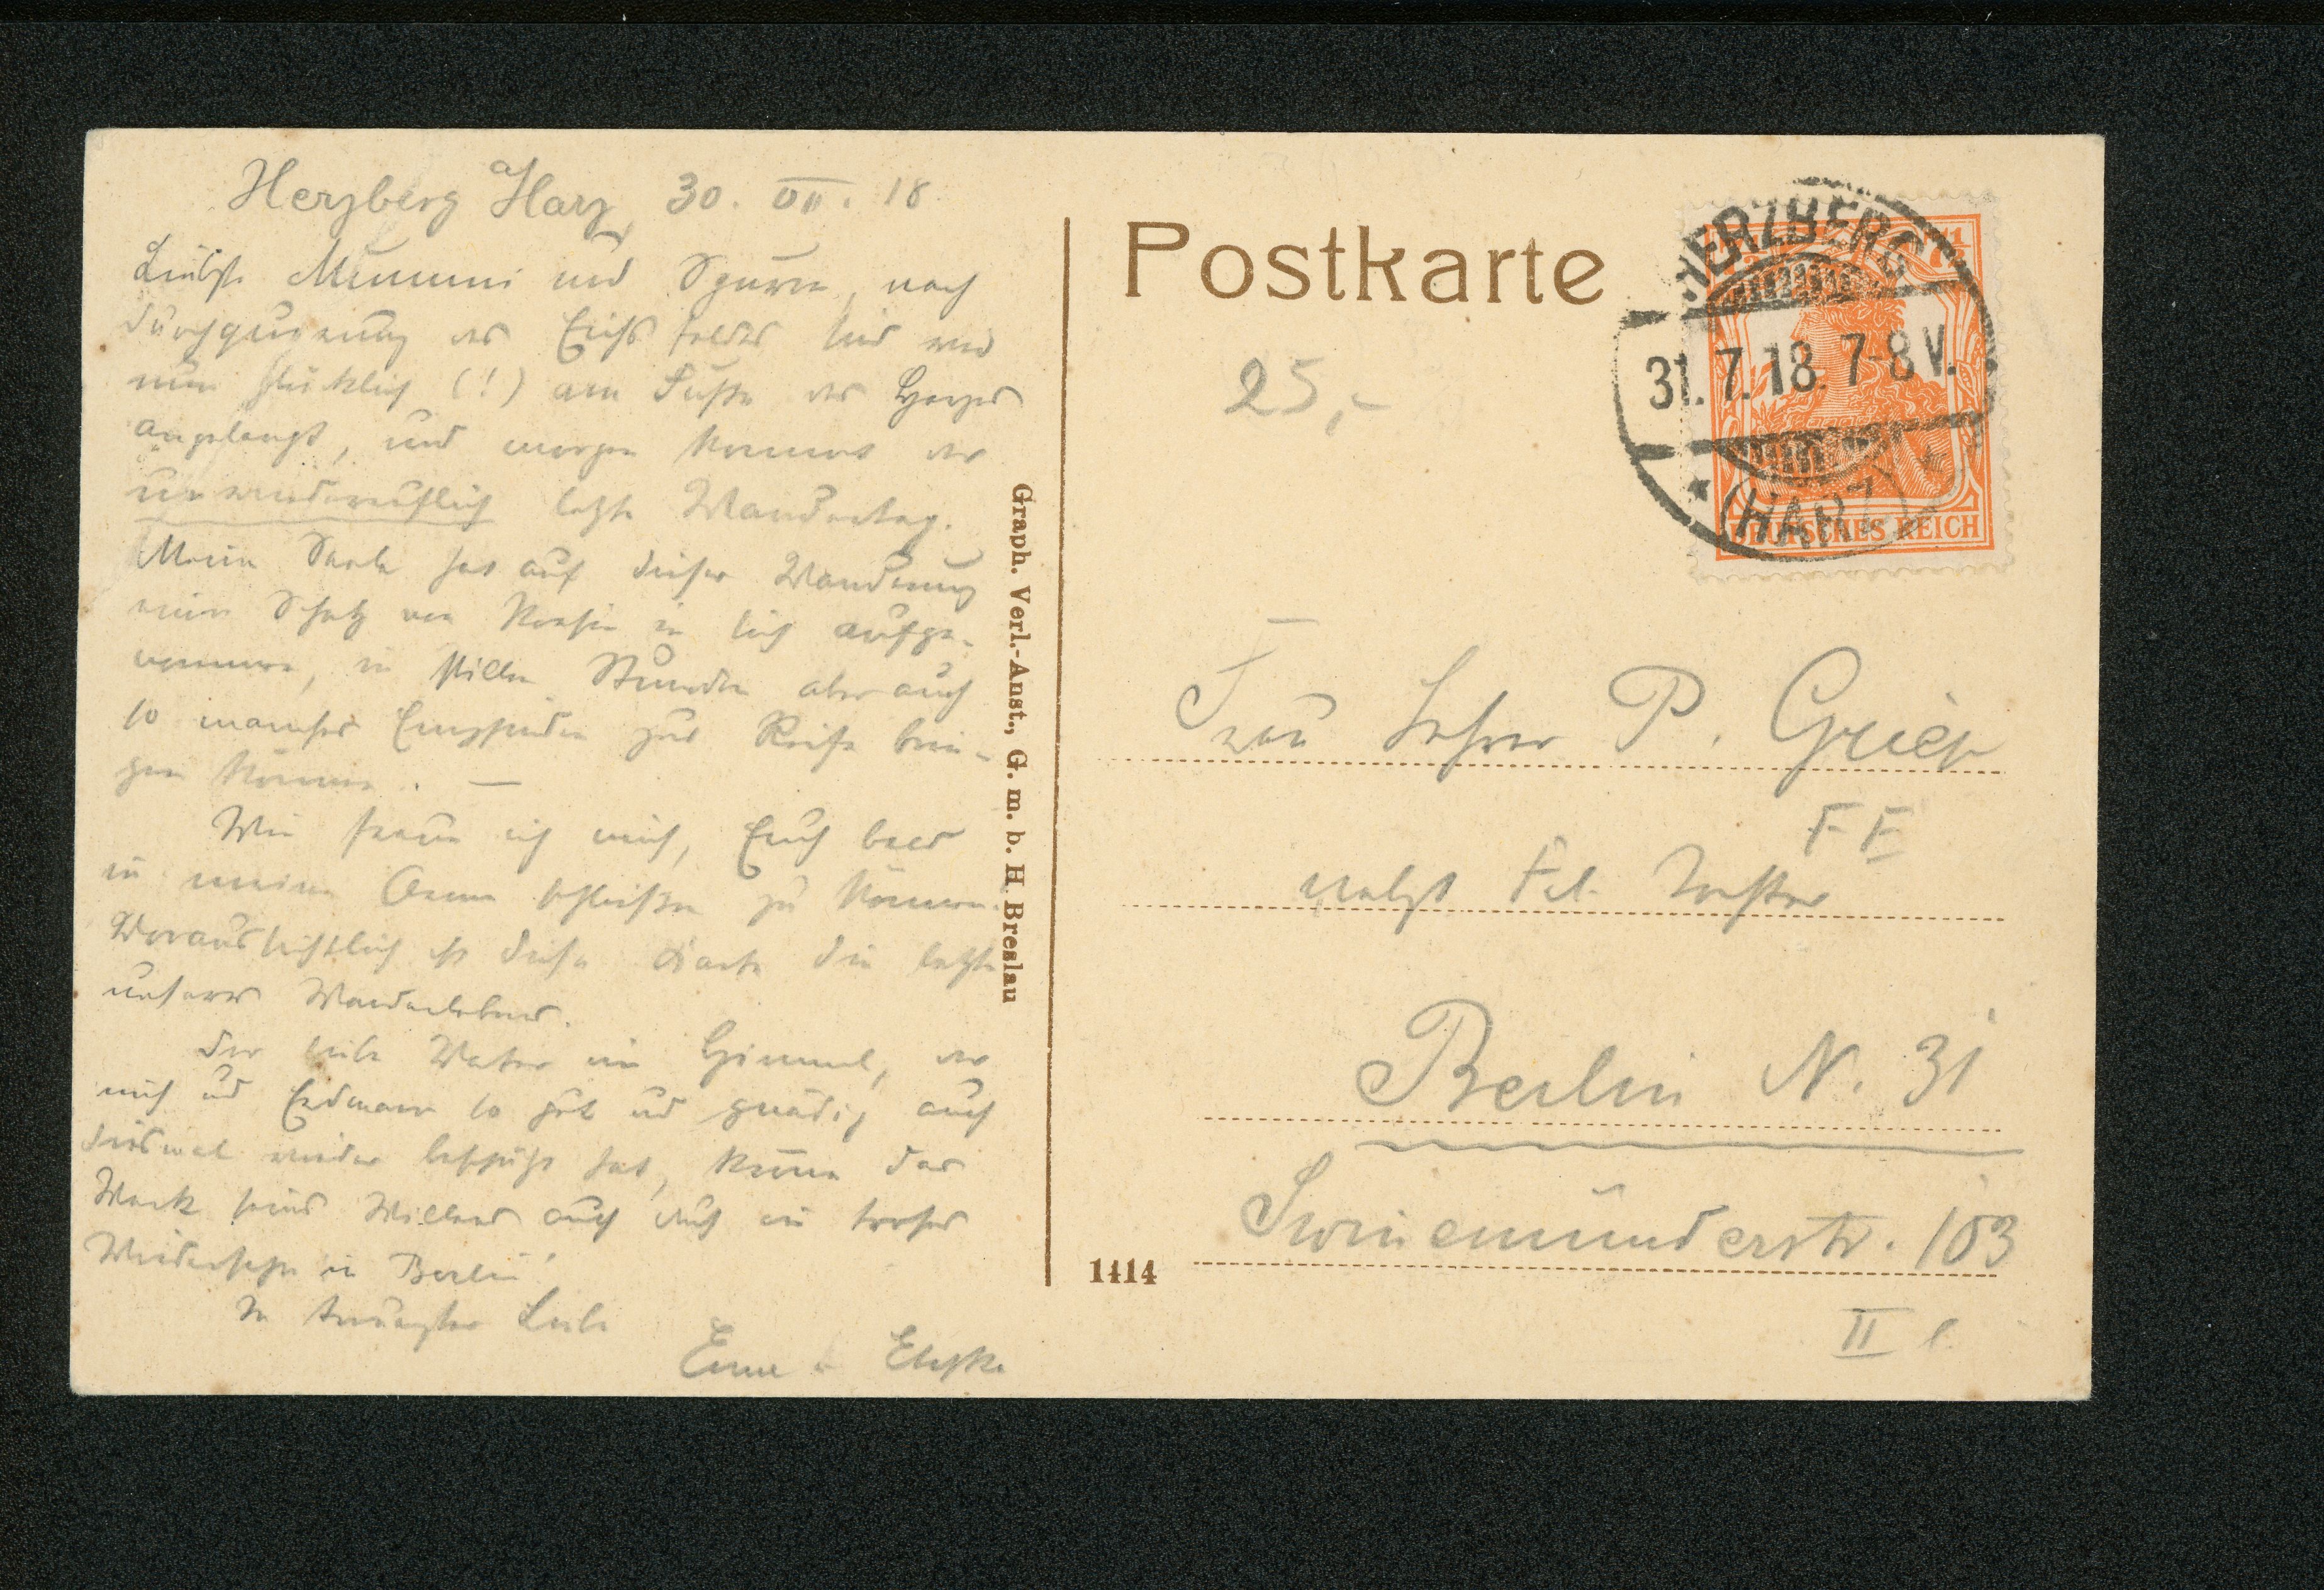 Herzberg a/Harz, 30. VII. 18
Liebste Mummi und, nach
Durchquerung des Eichsfeldes sind wir
nun glücklich (!) am Fuße des Harzes
angelangt, und morgen kommt der
unwiderruflich letzte Wandertag.
Meine Seele hat auf dieser Wanderung
einen Schatz von Poesie in sich aufge-
nommen, in stillen Stunden aber auch
so manches Empfinden zur Reife brin-
gen können. —
Wie freue ich mich, Euch bald
in meine Arme schließen zu können.
Voraussichtlich ist diese Karte die letzte
unseres Wanderlebens.
Der liebe Vater im Himmel, der
mich und Erdmann so gut und gnädig auch
diesmal wieder beschützt hat, kröne das
Werk seines Willens auch durch ein frohes
Wiedersehn in Berlin!
In treuester Liebe
Postkarte
25,-
HERZBERG
31.7.18. 7-8 V.
* (HARZ) *
DEUTSCHES REICH
Frau Lehrer P. Griep
FF
nebst Frl. Tochter
Berlin N. 31
Swinemünderstr. 103
II l.
Graph. Verl.-Anst., G. m. b. H. Breslau
1414